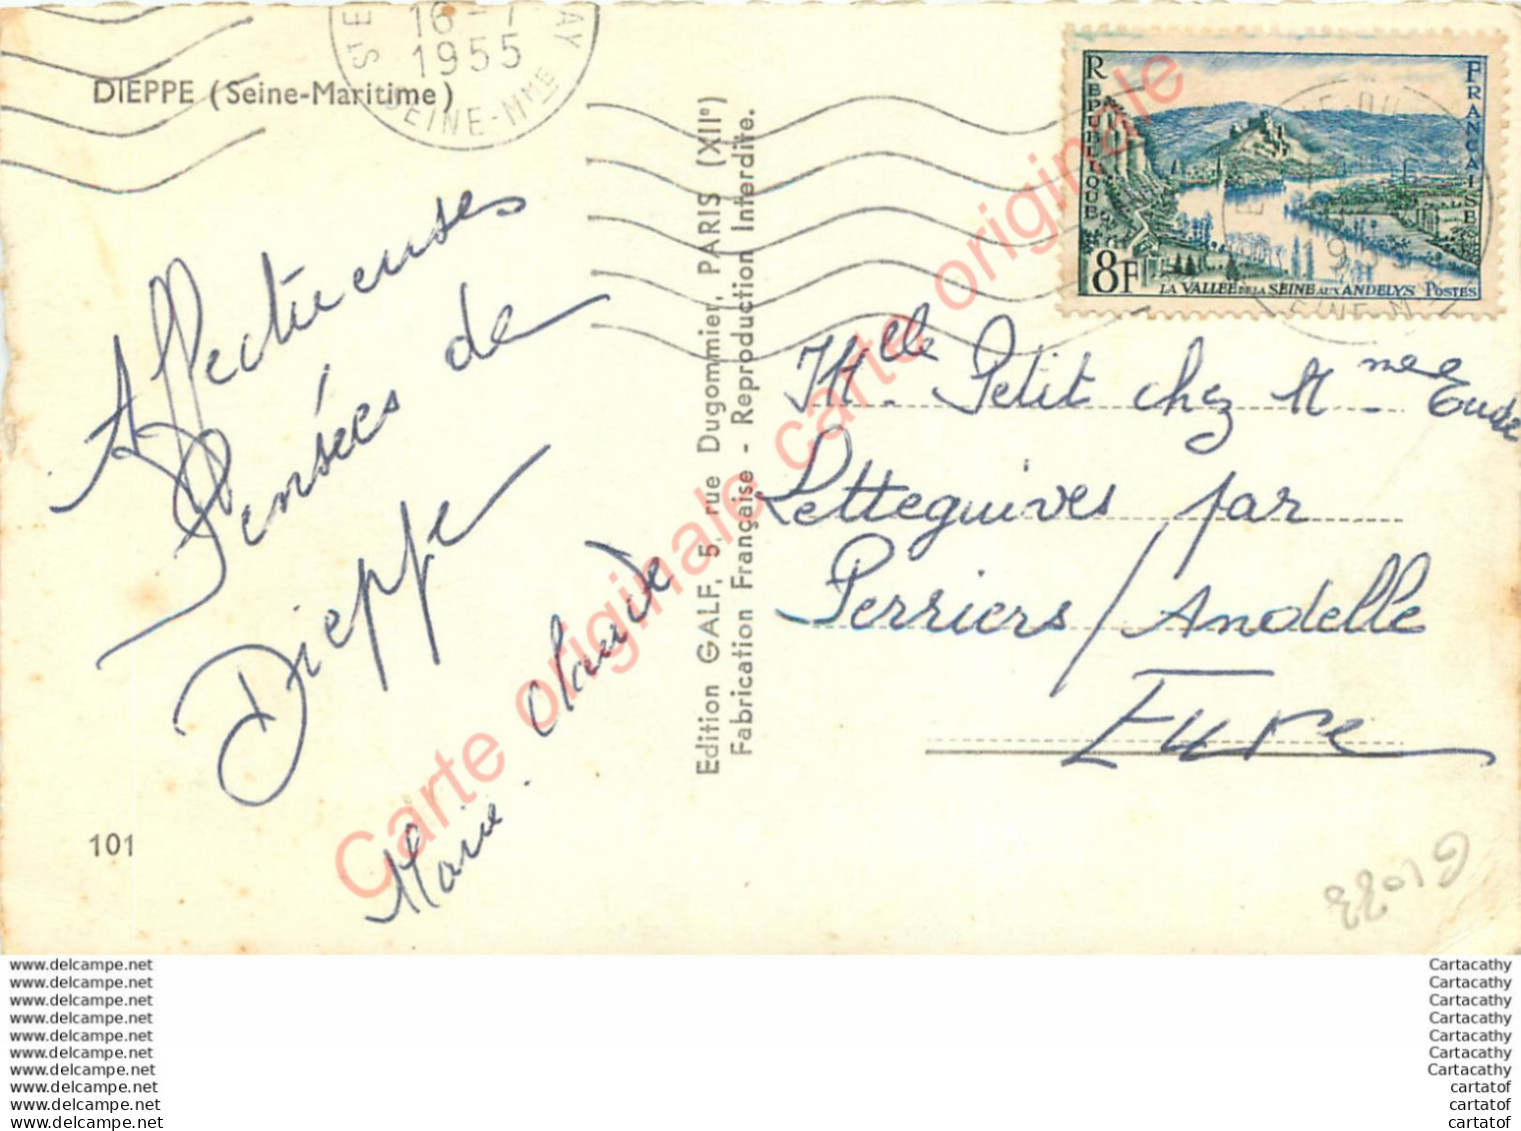 DIEPPE (Seine-Maritime)
16-7
1955
SEINE-MME
RÉPUBLIQUE
FRANÇAISE
8F
LA VALLÉE DE LA SEINE AUX ANDELYS POSTES
Affectueuses
Pensées de
Dieppe
Marie-Claude
101
Edition GALF, 5, rue Dugommier, PARIS (XIIe)
Fabrication Française - Reproduction Interdite.
Mlle Petit chez Mme Eude
Letteguives par
Perriers/Andelle
Eure
Carte originale carte originale
www.delcampe.net
www.delcampe.net
www.delcampe.net
www.delcampe.net
www.delcampe.net
www.delcampe.net
www.delcampe.net
www.delcampe.net
www.delcampe.net
www.delcampe.net
Cartacathy
Cartacathy
Cartacathy
Cartacathy
Cartacathy
Cartacathy
Cartacathy
cartatof
cartatof
cartatof